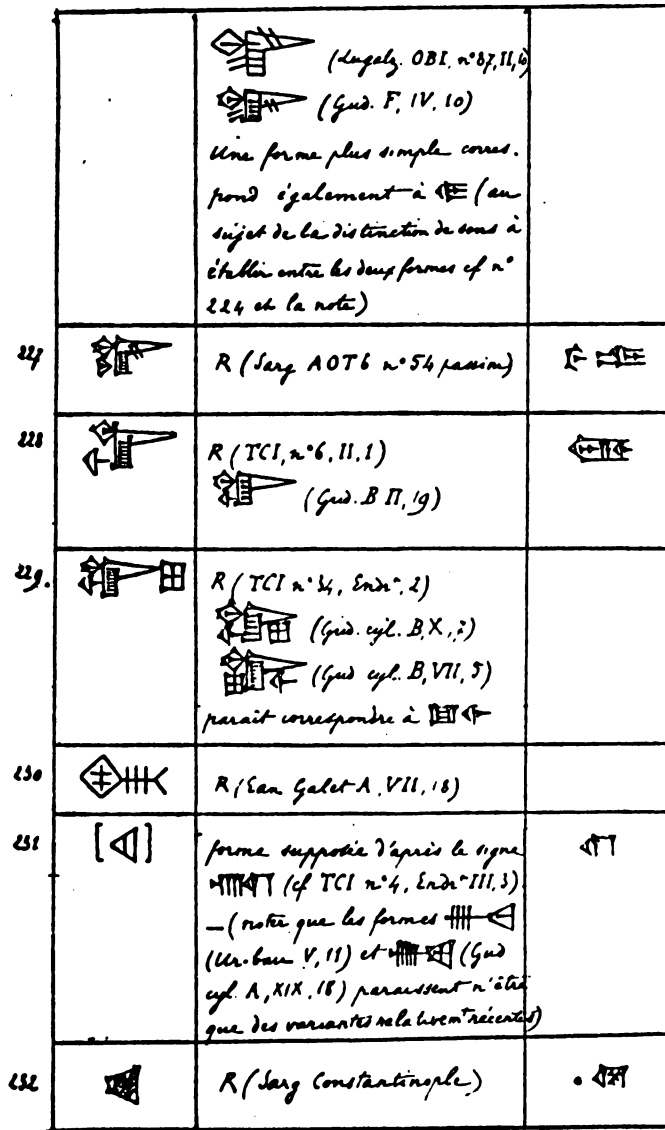 (Lugalz. OBI, n° 87, II,
(Gud. F, IV, 10)
Une forme plus simple corres.
pond également à (au
sujet de la distinction de sens à
établir entre les deux formes cf n°
224 et la note)
227 R (Sarg AOT6 n° 54 passim)
228 R (TCI, n° 6, II, 1)
(Gud. B II, 19)
229. R (TCI n° 34, Endrt, 2)
(Gud. cyl. B, X, 7)
(Gud cyl. B, VII, 5)
parait correspondre à
230 R (Ean Galet A, VII, 18)
231 [ ] forme supposée d'après le signe
(cf TCI n° 4, Endrt III, 3)
— (noter que les formes
(Ur-bau V, 11) et (Gud
cyl. A, XIX, 18) paraissent n'être
que des variantes relativemt récentes)
232 R (Sarg Constantinople)